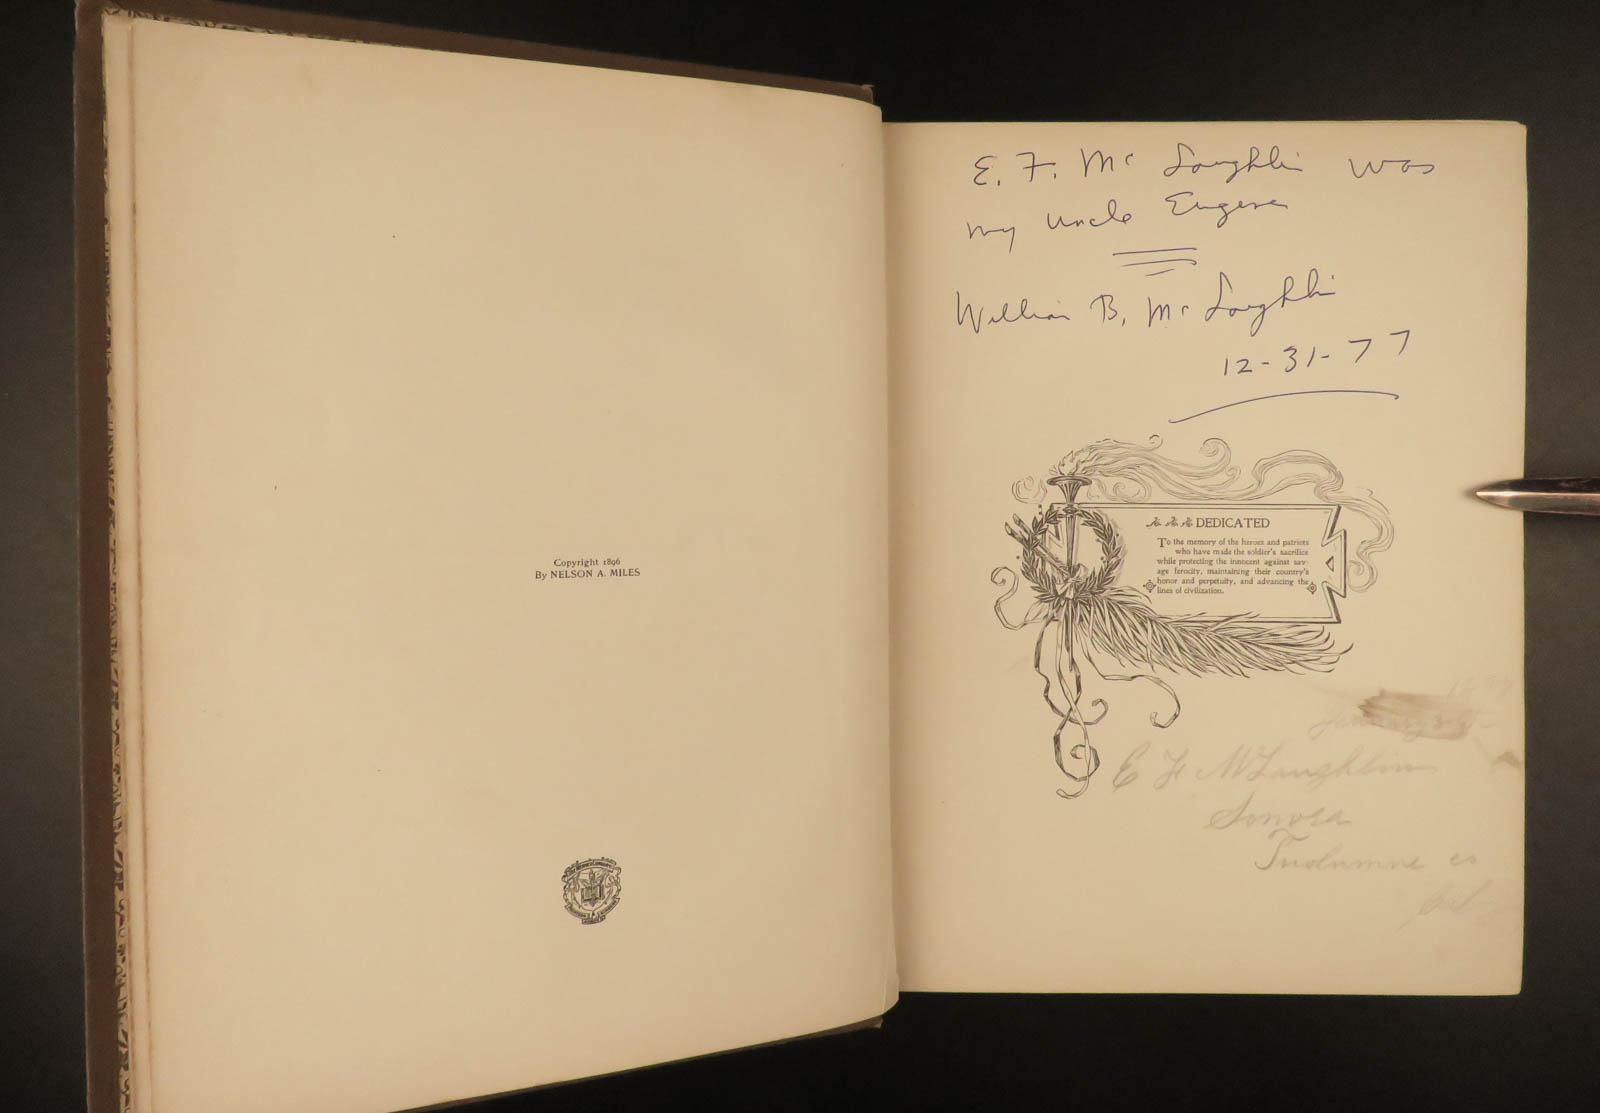 Copyright 1896
By NELSON A. MILES
E. F. Mc Loughlin was
my uncle Eugene
William B. Mc Loughlin
12-31-77
DEDICATED
To the memory of the heroes and patriots
who have made the soldier's sacrifice
while protecting the innocent against sav-
age ferocity, maintaining their country's
honor and perpetuity, and advancing the
lines of civilization.
January
E F McLaughlin
Sonora
Tuolumne co